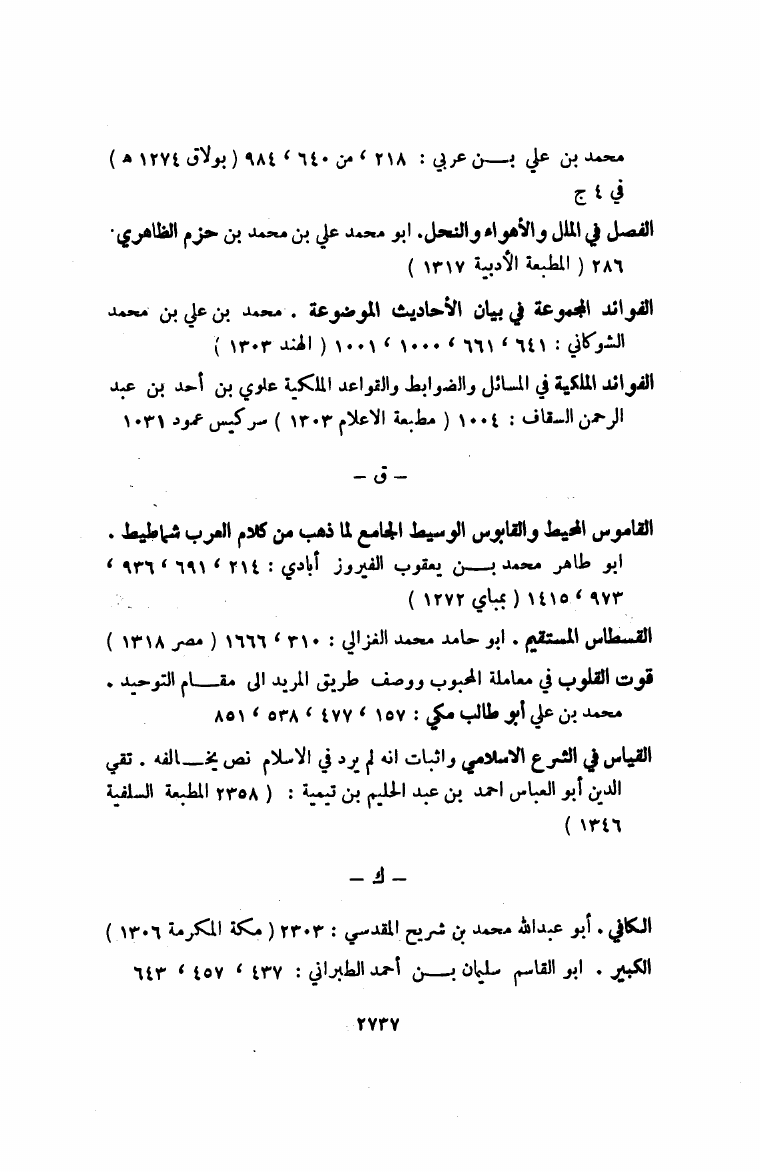 محمد بن علي بـــن عربي : ٢١٨ ، من ٦٤٠ ، ٩٨٤ ( بولاق ١٢٧٤ هـ )
في ٤ ج
الفصل في الملل والأهواء والنحل. ابو محمد علي بن محمد بن حزم الظاهري.
٢٨٦ ( المطبعة الأدبية ١٣١٧ )
الفوائد المجموعة في بيان الأحاديث الموضوعة . محمد بن علي بن محمد
الشوكاني : ٦٤١ ، ٦٦١ ، ١٠٠٠ ، ١٠٠١ ( الهند ١٣٠٣ )
الفوائد الملكية في المسائل والضوابط والقواعد الملكية علوي بن أحمد بن عبد
الرحمن السقاف : ١٠٠٤ ( مطبعة الاعلام ١٣٠٣ ) سركيس عمود ١٠٣١
– ق –
القاموس المحيط والقابوس الوسيط الجامع لما ذهب من كلام العرب شماطيط .
ابو طاهر محمد بـــن يعقوب الفيروز أبادي : ٢١٤ ، ٦٩١ ، ٩٣٦ ،
٩٧٣ ، ١٤١٥ ( بمباي ١٢٧٢ )
القسطاس المستقيم . ابو حامد محمد الغزالي : ٣١٠ ، ١٦٦٦ ( مصر ١٣١٨ )
قوت القلوب في معاملة المحبوب ووصف طريق المريد الى مقـــام التوحيد .
محمد بن علي أبو طالب مكي : ١٥٧ ، ٤٧٧ ، ٥٣٨ ، ٨٥١
القياس في الشرع الاسلامي واثبات انه لم يرد في الاسلام نص يخـــالفه . تقي
الدين أبو العباس احمد بن عبد الحليم بن تيمية : ( ٢٣٥٨ المطبعة السلفية
١٣٤٦ )
– ك –
الكافي . أبو عبدالله محمد بن شريح المقدسي : ٢٣٠٣ ( مكة المكرمة ١٣٠٦ )
الكبير . ابو القاسم سليمان بـــن أحمد الطبراني : ٤٣٧ ، ٤٥٧ ، ٦٤٣
٢٧٣٧